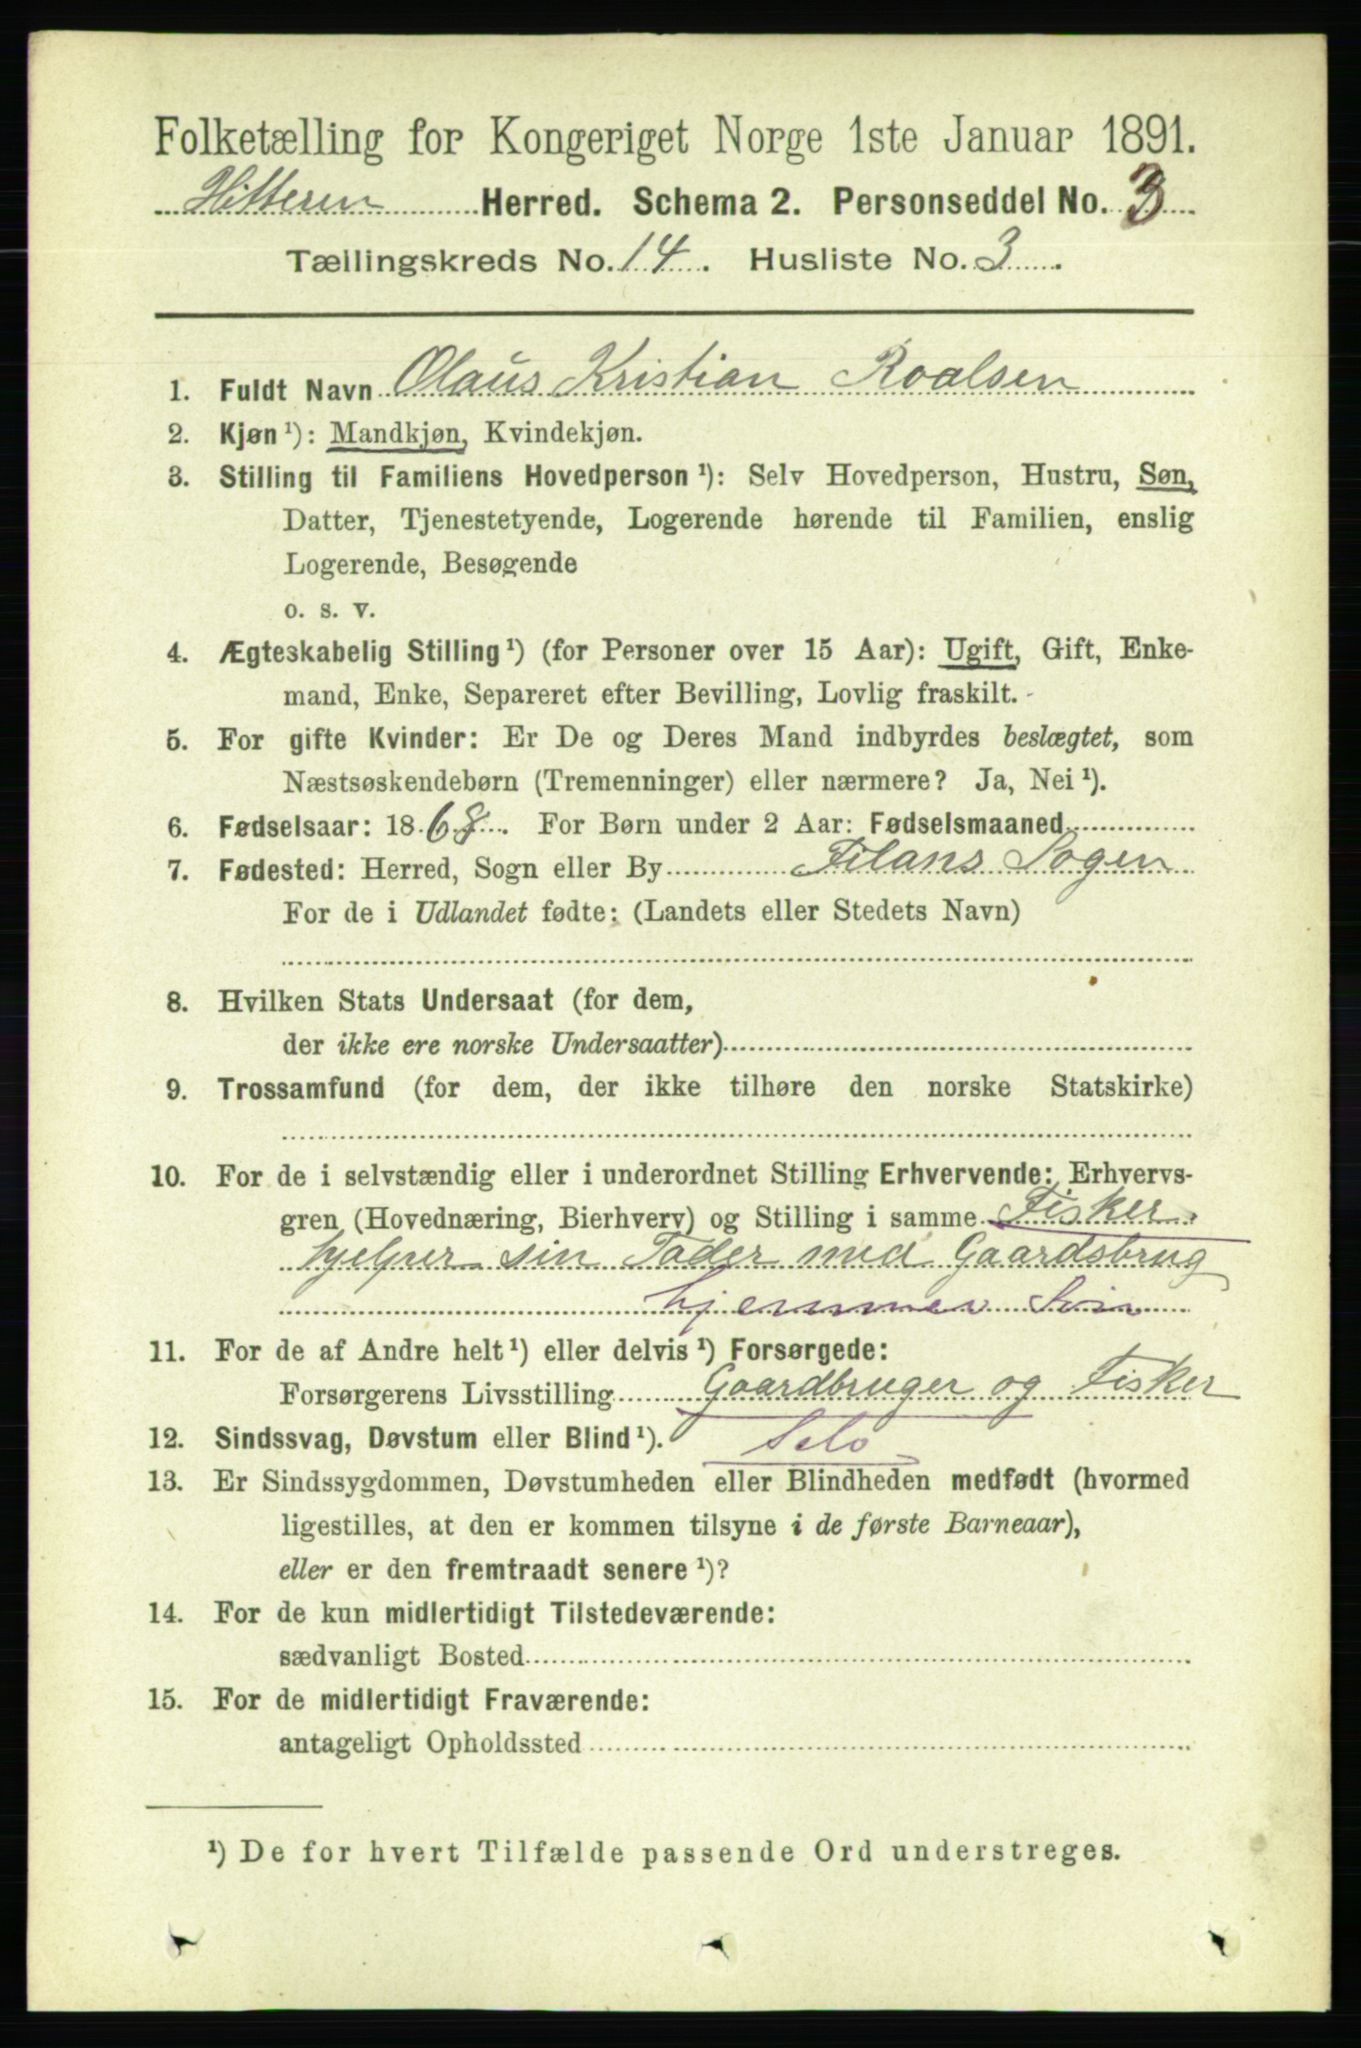 Folketælling for Kongeriget Norge 1ste Januar 1891.
Hitteren Herred. Schema 2. Personseddel No. 3
Tællingskreds No. 14. Husliste No. 3.
1. Fuldt Navn Olaus Kristian Roalsen
2. Kjøn¹): Mandkjøn, Kvindekjøn.
3. Stilling til Familiens Hovedperson¹): Selv Hovedperson, Hustru, Søn,
Datter, Tjenestetyende, Logerende hørende til Familien, enslig
Logerende, Besøgende
o. s. v.
4. Ægteskabelig Stilling¹) (for Personer over 15 Aar): Ugift, Gift, Enke-
mand, Enke, Separeret efter Bevilling, Lovlig fraskilt.
5. For gifte Kvinder: Er De og Deres Mand indbyrdes beslægtet, som
Næstsøskendebørn (Tremenninger) eller nærmere? Ja, Nei¹).
6. Fødselsaar: 1868. For Børn under 2 Aar: Fødselsmaaned
7. Fødested: Herred, Sogn eller By Filans Sogen
For de i Udlandet fødte: (Landets eller Stedets Navn)
8. Hvilken Stats Undersaat (for dem,
der ikke ere norske Undersaatter)
9. Trossamfund (for dem, der ikke tilhøre den norske Statskirke)
10. For de i selvstændig eller i underordnet Stilling Erhvervende: Erhvervs-
gren (Hovednæring, Bierhverv) og Stilling i samme Fisker
hjelper sin Fader med Gaardsbrug
hjemmev Søn
11. For de af Andre helt¹) eller delvis¹) Forsørgede:
Forsørgerens Livsstilling Gaardbruger og Fisker
12. Sindssvag, Døvstum eller Blind¹). Selv
13. Er Sindssygdommen, Døvstumheden eller Blindheden medfødt (hvormed
ligestilles, at den er kommen tilsyne i de første Barneaar),
eller er den fremtraadt senere¹)?
14. For de kun midlertidigt Tilstedeværende:
sædvanligt Bosted
15. For de midlertidigt Fraværende:
antageligt Opholdssted
¹) De for hvert Tilfælde passende Ord understreges.